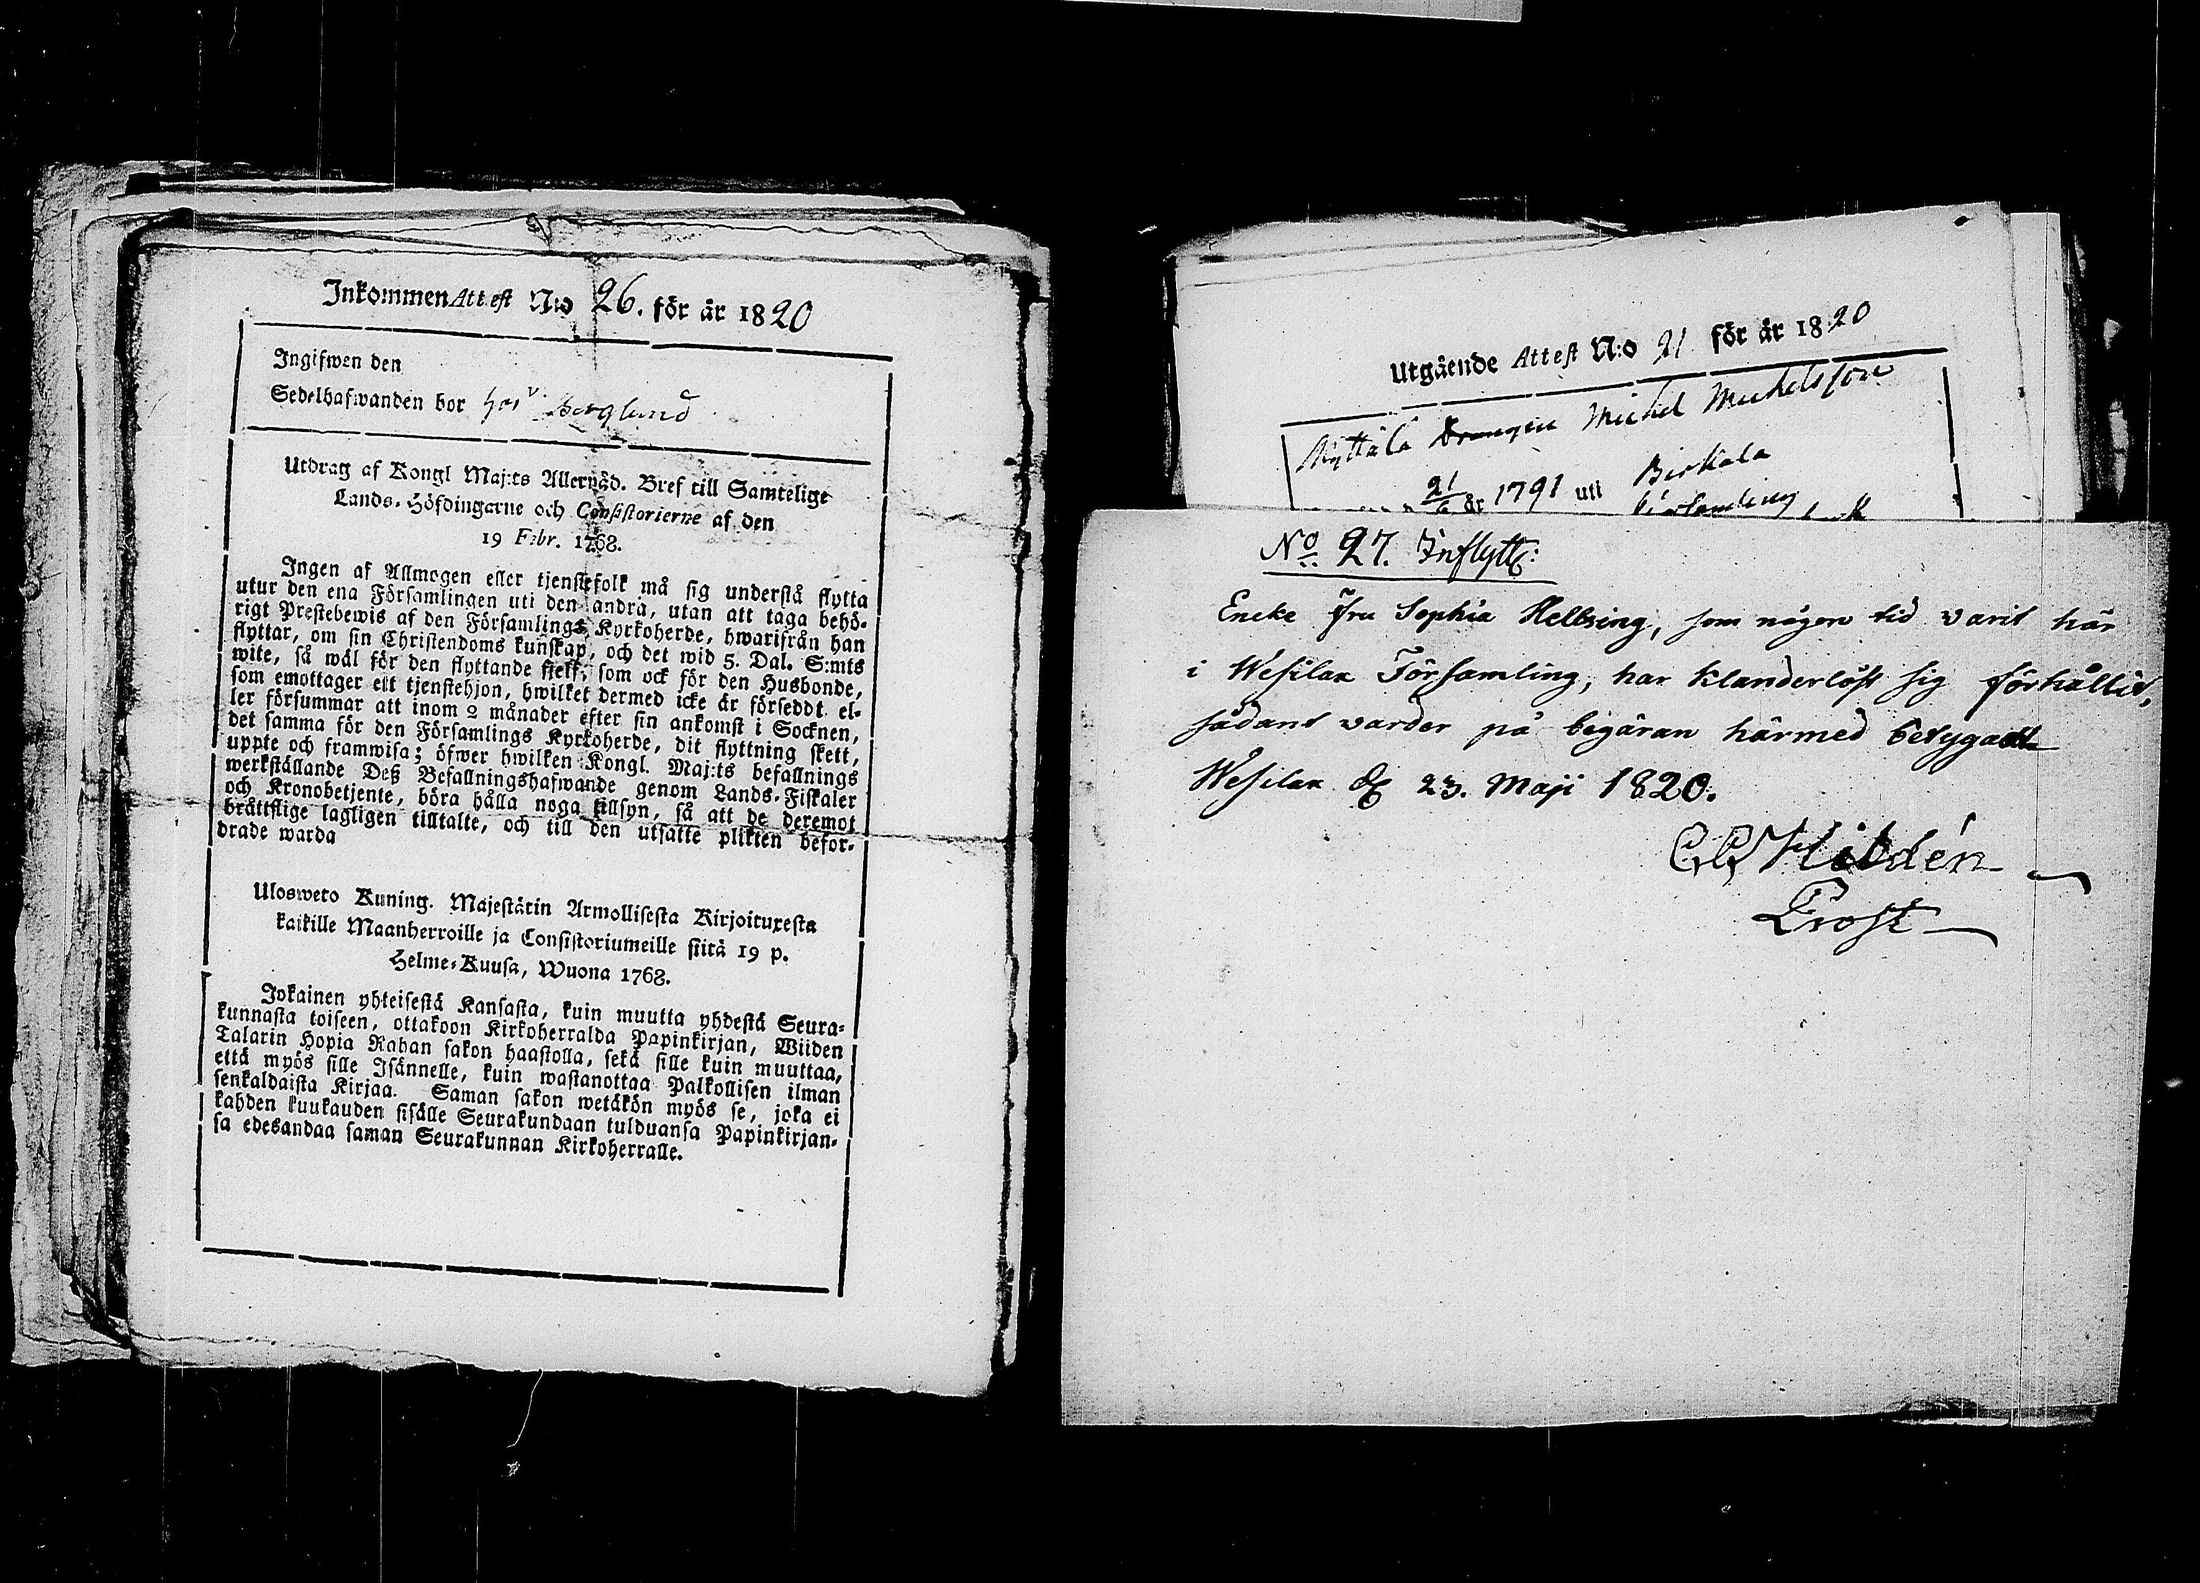 Inkommen Attest N:o 26. för år 1820
Ingifwen den
Sedelhafwanden bor hos Berglund
Utdrag af Kongl Maj:ts Allernåd. Bref till Samtelige
Lands-Höfdingarne och Consistorierne af den
19 Febr. 1768.
Ingen af Allmogen eller tjenstefolk må sig understå flytta
utur den ena Församlingen uti den andra, utan att taga behö-
rigt Prestebewis af den Församlings Kyrkoherde, hwarifrån han
flyttar, om sin Christendoms kunskap, och det wid 5. Dal. S:mts
wite, så wäl för den flyttande sielf, som ock för den Husbonde,
som emottager ett tjenstehjon, hwilket dermed icke är försedt. el-
ler försummar att inom 2 månader efter sin ankomst i Socknen,
det samma för den Församlings Kyrkoherde, dit flyttning skett,
uppte och framwisa; öfwer hwilken Kongl. Maj:ts befallnings
werkställande Deß Befallningshafwande genom Lands-Fiskaler
och Kronobetjente, böra hålla noga tillsyn, så att de deremot
bråttslige lagligen tilltalte, och till den utsatte plikten befor-
drade warda
Uloswето Kuning. Majestätin Armollisesta Kirjoituxesta
kaikille Maanherroille ja Consistoriumeille siitä 19 p.
Helme-Kuusa, Wuona 1768.
Jokainen yhteisestä Kansasta, kuin muutta yhdestä Seura-
kunnasta toiseen, ottakoon Kirkoherralda Papinkirjan, Wiiden
Talarin Hopia Rahan sakon haastolla, sekä sille kuin muuttaa,
että myös sille Isännelle, kuin wastanottaa Palkollisen ilman
senkaldaista Kirjaa. Saman sakon wetäkön myös se, joka ei
kahden kuukauden sisälle Seurakundaan tulduansa Papinkirjan-
sa edesandaa saman Seurakunnan Kirkoherralle.
Utgående Attest N:o 21 för år 1820
Kyttälä Drängen Michel Michelsson
21/6 år 1791 uti Birkala
församling
No 27. Inflytt:
Encke Fru Sophia Hellsing, som någon tid varit här
i Wesilax Församling, har klanderlöst sig förhållit,
sådant varder på begäran härmed betygadt
Wesilax d 23. Maji 1820.
Hildén
Prost